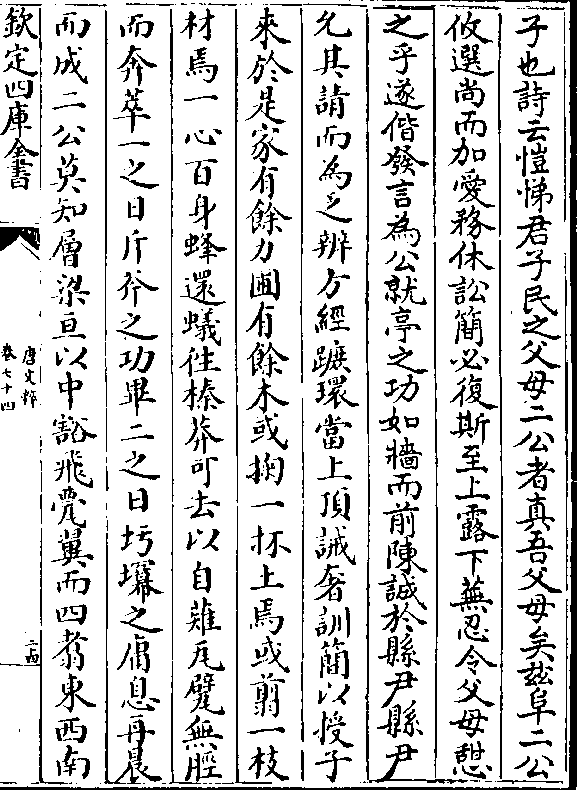 子也詩云愷悌君子民之父母二公者真吾父母矣茲阜二公
攸選尚而加愛務休訟簡必復斯至上露下蕪忍令父母憇
之乎遂偕發言為公就亭之功如牆而前陳誠於縣尹縣尹
允其請而為之辨方經蹠環當上頂誡奢訓簡以授子
來於是家有餘力圃有餘木或掬一抔土焉或翦一枝
材焉一心百身蜂還蟻往榛莽可去以自薙瓦甓無脛
而奔萃一之日斤斧之功畢二之日圬墁之傭息再晨
而成二公莫知層梁亘以中豁飛甍翼而四翥東西南
欽定四庫全書
唐文粹
卷七十四
二古